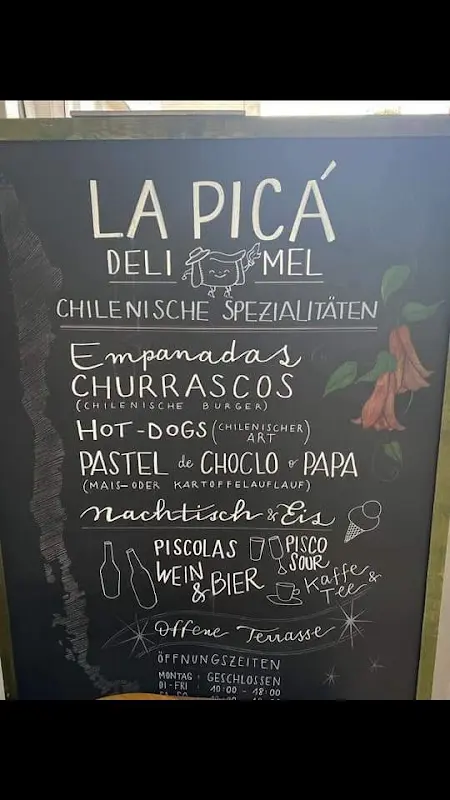 LA PICÁ
DELI MEL
CHILENISCHE SPEZIALITÄTEN
Empanadas
CHURRASCOS
(CHILENISCHE BURGER)
HOT-DOGS (CHILENISCHER ART)
PASTEL de CHOCLO o PAPA
(MAIS- ODER KARTOFFELAUFLAUF)
Nachtisch & Eis
PISCOLAS
PISCO SOUR
WEIN & BIER
Kaffe & Tee
Offene Terrasse
ÖFFNUNGSZEITEN
MONTAG : GESCHLOSSEN
DI-FRI : 10:00 - 18:00